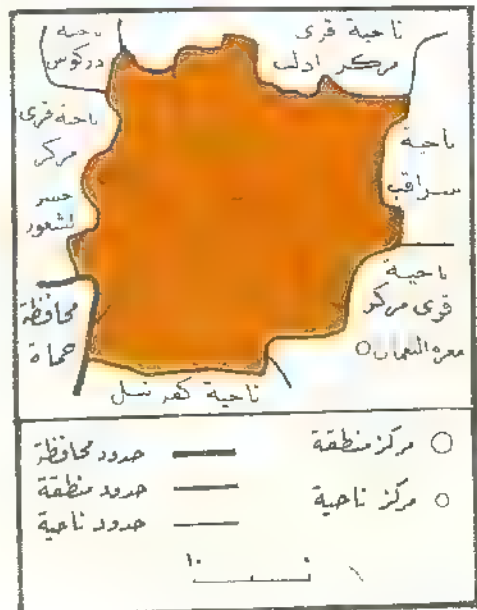 ناحية
دركوس
ناحية قرى
مركز ادلب
ناحية قرى
مركز
جسر
الشغور
ناحية
سراقب
ناحية
قرى مركز
معرة النعمان
محافظة
حماة
ناحية كفر نبل
مركز منطقة
مركز ناحية
حدود محافظة
حدود منطقة
حدود ناحية
١٠ ٠